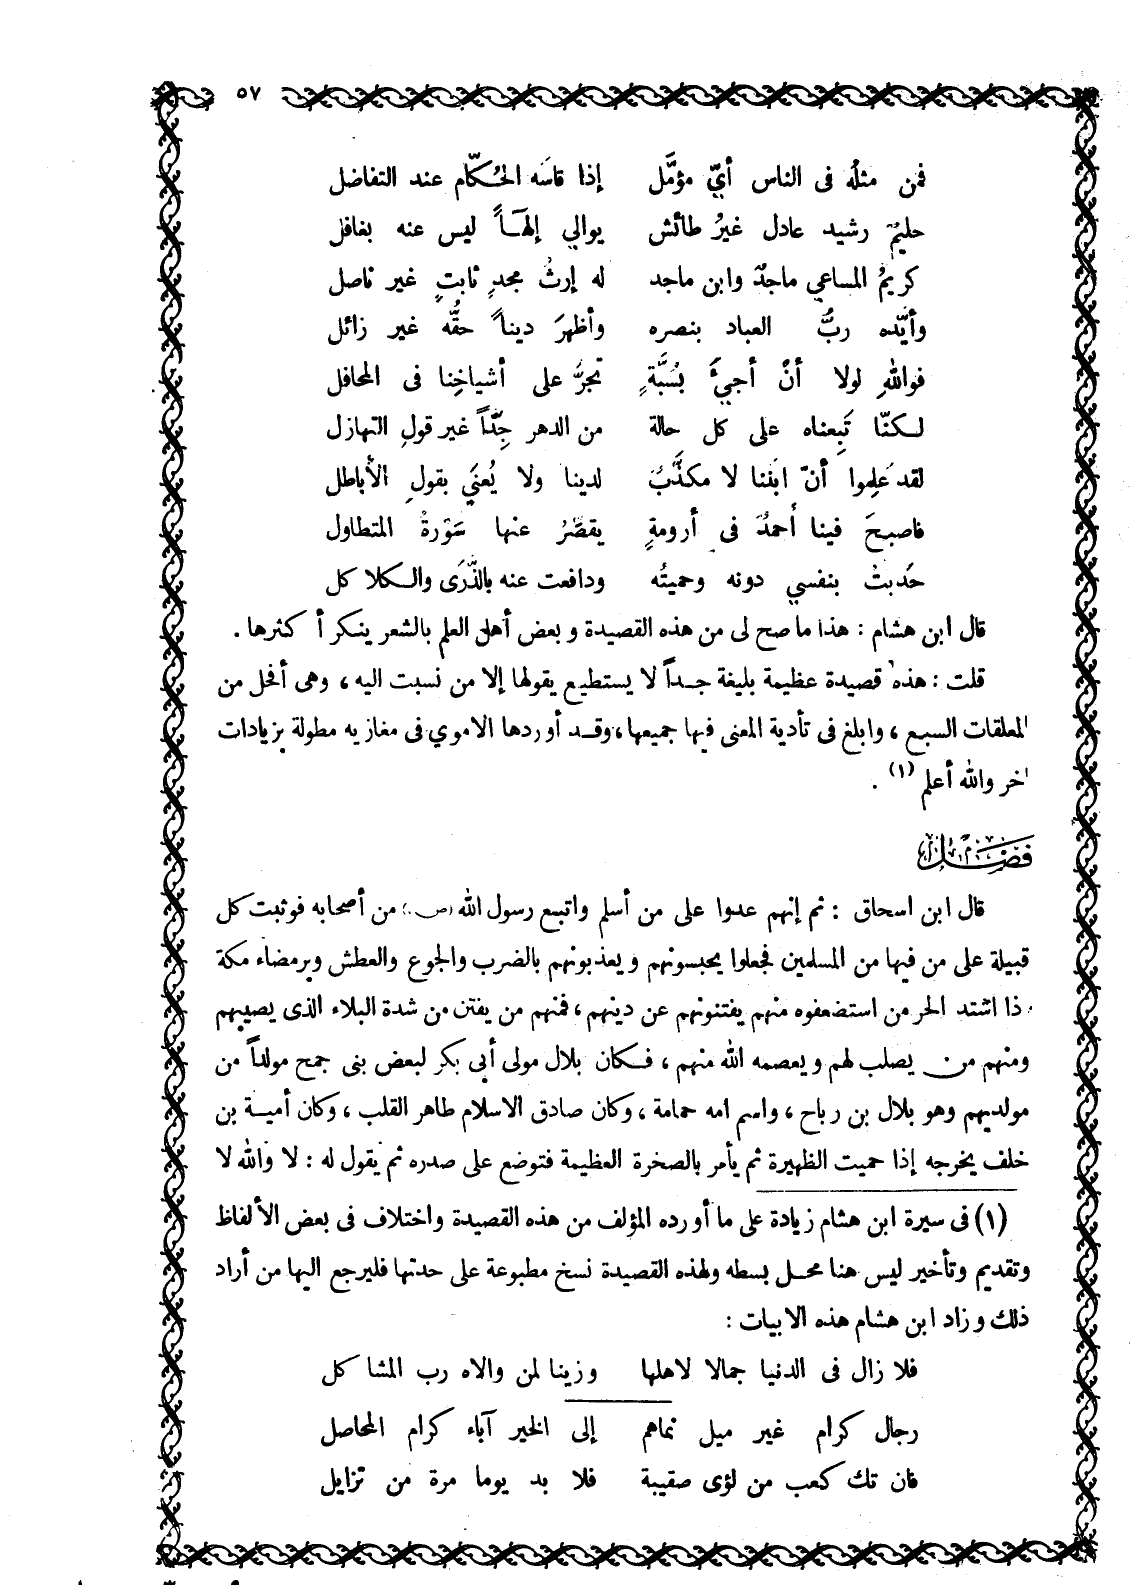 ٥٧
فمن مثلُه فى الناس أيّ مؤمَّل إذا قاسَه الحُكّام عند التفاضل
حليمٌ رشيد عادل غيرُ طائش يوالي إلهَاً ليس عنه بغافل
كريمُ المساعي ماجدٌ وابن ماجد له إرثُ مجدٍ ثابتٍ غير ناصل
وأيَّده ربُّ العباد بنصره وأظهرَ ديناً حقُّه غير زائل
فواللهِ لولا أنْ أجيْءَ بسُبَّةٍ تجرُّ على أشياخِنا فى المحافل
لكنّا تَبِعناه على كل حالة من الدهر جِدّاً غير قولِ التهازل
لقد عَلِموا أنّ ابنَنا لا مكذَّبٌ لدينا ولا يُعنَي بقولِ الأباطل
فاصبحَ فينا أحمدٌ فى أرومةٍ يقصِّرُ عنها سَوْرةُ المتطاول
حَدبتُ بنفسي دونه وحميتُه ودافعت عنه بالذَّرَى والكلاكل
قال ابن هشام : هذا ما صح لى من هذه القصيدة وبعض أهل العلم بالشعر ينكر أكثرها .
قلت : هذه قصيدة عظيمة بليغة جداً لا يستطيع يقولها إلا من نسبت اليه ، وهى أفحل من
المعلقات السبع ، وابلغ فى تأدية المعنى فيها جميعها ، وقد أوردها الاموي فى مغازيه مطولة بزيادات
اخر والله أعلم (١) .
فَصْل
قال ابن اسحاق : ثم إنهم عدوا على من أسلم واتبع رسول الله (ص) من أصحابه فوثبت كل
قبيلة على من فيها من المسلمين فجعلوا يحبسونهم ويعذبونهم بالضرب والجوع والعطش وبرمضاء مكة
ذا اشتد الحر من استضعفوه منهم يفتنونهم عن دينهم ، فمنهم من يفتن من شدة البلاء الذى يصيبهم
ومنهم من يصلب لهم ويعصمه الله منهم ، فكان بلال مولى أبي بكر لبعض بنى جمح مولداً من
مولديهم وهو بلال بن رباح ، واسم امه حمامة ، وكان صادق الاسلام طاهر القلب ، وكان أمية بن
خلف يخرجه إذا حميت الظهيرة ثم يأمر بالصخرة العظيمة فتوضع على صدره ثم يقول له : لا والله لا
(١) فى سيرة ابن هشام زيادة على ما أورده المؤلف من هذه القصيدة واختلاف فى بعض الألفاظ
وتقديم وتأخير ليس هنا محل بسطه ولهذه القصيدة نسخ مطبوعة على حدتها فليرجع اليها من أراد
ذلك وزاد ابن هشام هذه الابيات :
فلا زال فى الدنيا جمالا لاهلها وزينا لمن والاه رب المشاكل
رجال كرام غير ميل نماهم إلى الخير آباء كرام المحاصل
فان تك كعب من لؤى صقيبة فلا بد يوما مرة من تزايل